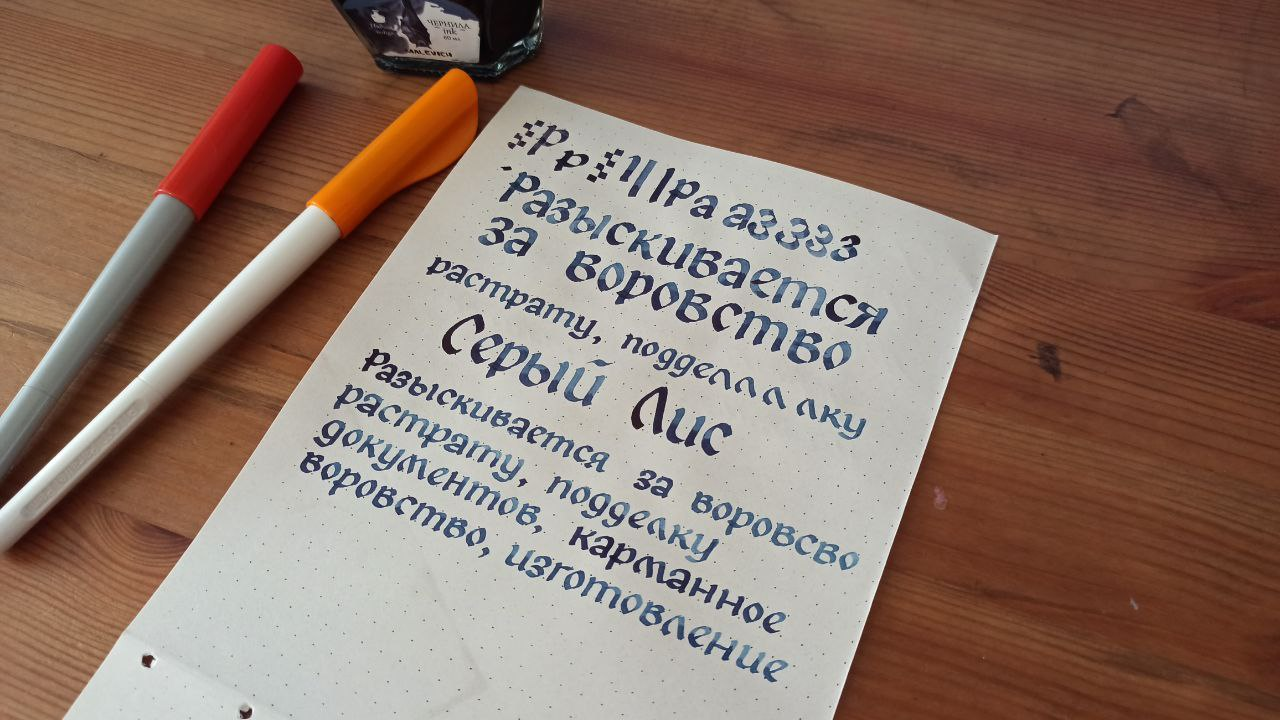 ЧЕРНИЛА
ink
Р р || | Ра аззззз
Разыскивается
за воровство
растрату,подделлл лку
Серый Лис
Разыскивается за воровсво
растрату, подделку
документов, карманное
воровство, изготовление